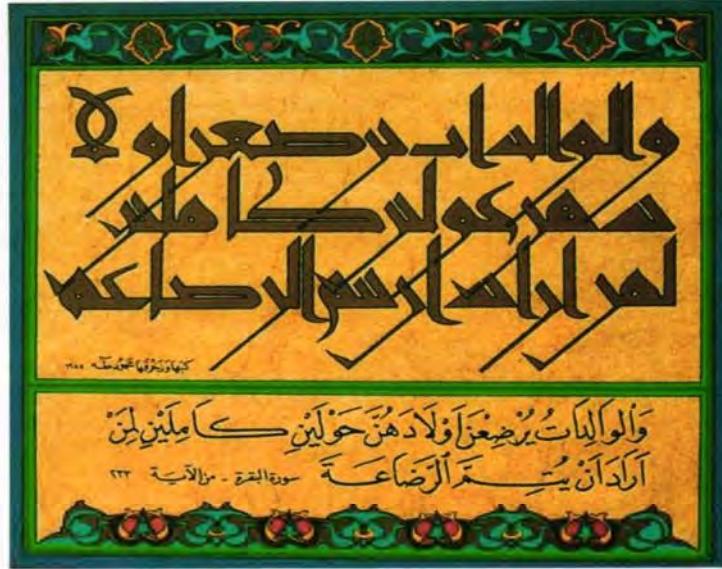 والوالدات يرضعن أولا
دهن حولين كاملين
لمن اراد ان يتم الرضاعة
كتبها وزخرفها محمود طه ١٩٨٥
وَالْوالِدَاتُ يُرْضِعْنَ اَوْلَادَهُنَّ حَوْلَيْنِ كَامِلَيْنِ لِمَنْ
اَرَادَ اَنْ يُتِمَّ الرَّضَاعَةَ سورة البقرة - من الآية ٢٣٣